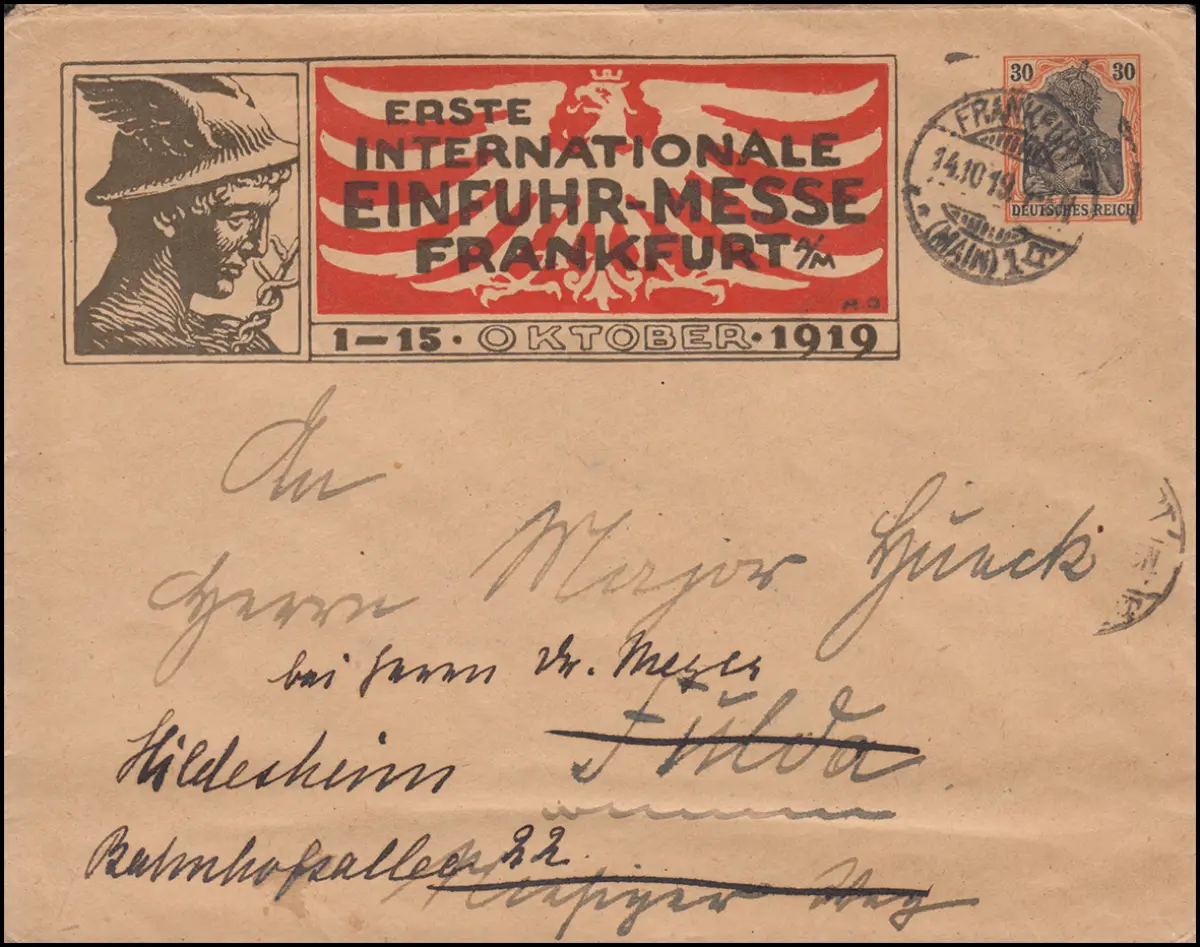 30 30
DEUTSCHES REICH
FRANKFURT
14.10.19
(MAIN) 1
ERSTE
INTERNATIONALE
EINFUHR-MESSE
FRANKFURT A/M
1-15. OKTOBER. 1919
An
Herrn Major Hueck
bei Herrn Dr. Meyer
Fulda
Hildesheim
Bahnhofsallee 22
Weg